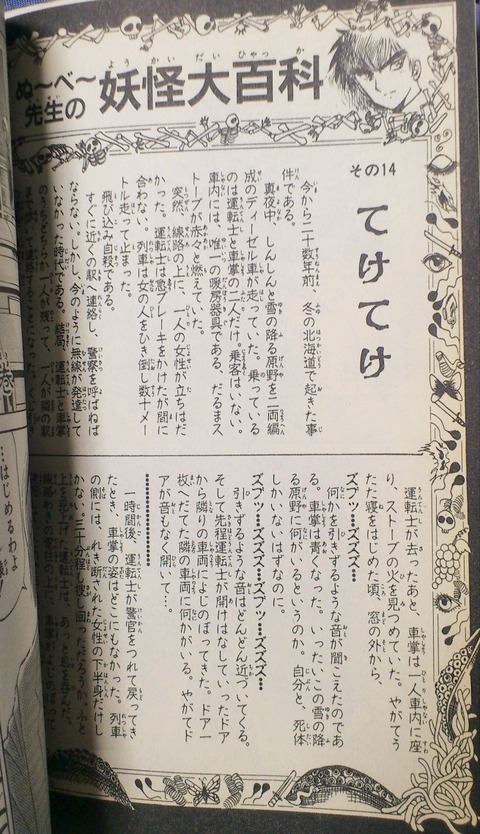 ぬ〜べ〜
先生の
妖怪大百科
その14
てけてけ
今から二十数年前、冬の北海道で起きた事
件である。
真夜中、しんしんと雪の降る原野を二両編
成のディーゼル車が走っていた。乗っている
のは運転士と車掌の二人だけ。乗客はいない。
車内には、唯一の暖房器具である、だるまス
トーブが赤々と燃えていた。
突然、線路の上に、一人の女性が立ちはだ
かった。運転士は急ブレーキをかけたが間に
合わない。列車は女の人をひき倒し数十メー
トル走って止まった。
飛び込み自殺である。
すぐに近くの駅へ連絡し、警察を呼ばねば
ならない。しかし、今のように無線が発達して
いなかった時代である。結局、運転士と車掌
のうちどちらか一人が残って、一人が隣の駅
まで歩いて連絡することになった。くじ引き
運転士が去ったあと、車掌は一人車内に座
り、ストーブの火を見つめていた。やがてう
たた寝をはじめた頃、窓の外から、
ズブッ…ズズズ……ズブッ……ズズズ……
何かを引きずるような音が聞こえたのであ
る。車掌は青くなった。いったい、この雪の降
る原野に何がいるというのか。自分と、死体
しかいないはずなのに。
ズブッ……ズズズ……ズブッ……ズズズ……
引きずるような音はどんどん近づいてくる。
そして先程運転士が開けはなしていったドア
から隣りの車両によじのぼってきた。ドア一
枚へだてた隣の車両に何かがいる。やがてド
アが音もなく開いて…。
一時間後、運転士が警官をつれて戻ってき
たとき、車掌の姿はどこにもなかった。列車
の側には、れき断された女性の下半身だけし
かない。三十分程も捜し回ったろうか、ふと
上を見上げた運転士は、あっと息を呑んだ。
…はじめるわよ